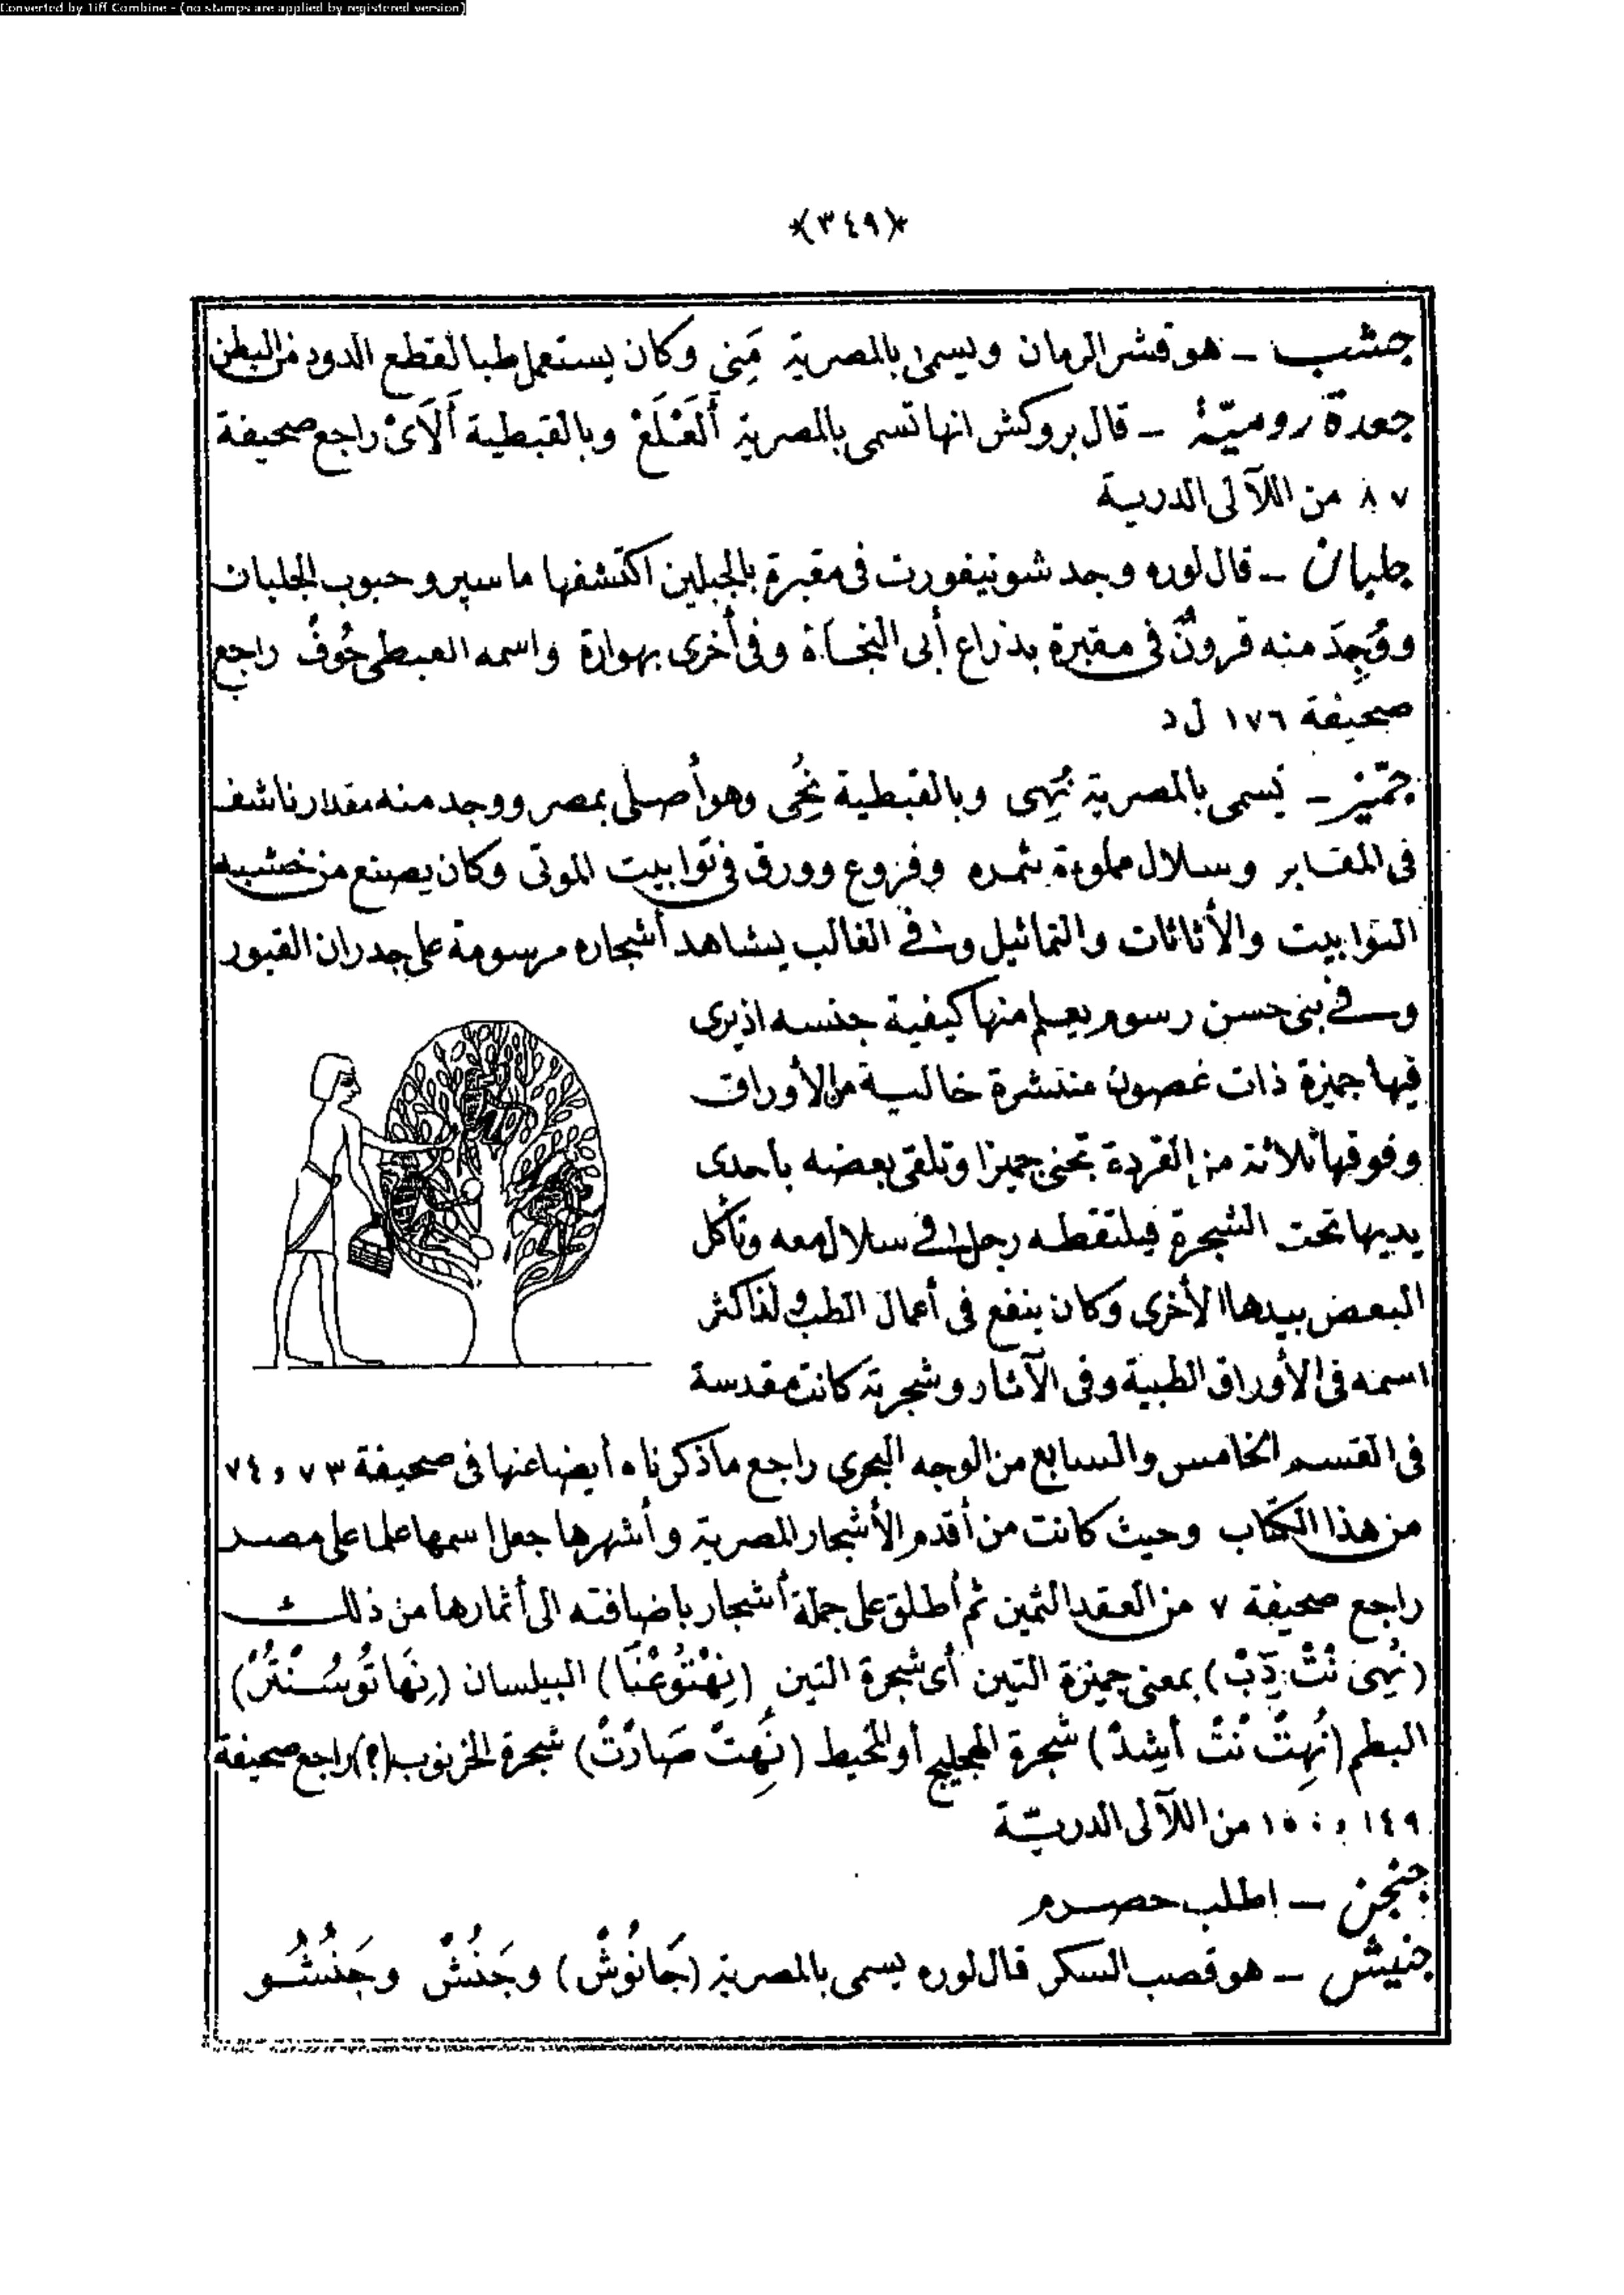 Converted by Tiff Combine - (no stamps are applied by registered version)
*(٣٤٩)*
جشب ــ هو قشر الرمان ويسمى بالمصرية مَنِى وكان يستعمل طبا لقطع الدود من البطن
جعدة روميّة ــ قال بروكش انها تسمى بالمصرية أَلْعَلَعْ وبالقبطية أَلَاىْ راجع صحيفة
٨٧ من اللآلى الدرية
جلبان ــ قال لوره وجد شونيفورت فى مقبرة بالجبلين اكتشفها ماسپرو حبوب الجلبان
ووُجِدَ منه قرونٌ فى مقبرة بذراع أبى النجاة وفى أخرى بهوارة واسمه القبطى خُوفْ راجع
صحيفة ١٧٦ ل د
جمّيز ــ يسمى بالمصرية نُهِى وبالقبطية نُحِى وهو أصلى بمصر ووجد منه مقدار ناشف
فى المقابر وسلال مملوءة بثمره وفروع وورق فى توابيت الموتى وكان يصنع من خشبه
التوابيت والأثاثات والتماثيل وفى الغالب يشاهد أشجاره مرسومة على جدران القبور
وفى بنى حسن رسوم يعلم منها كيفية جنسه اذ يرى
فيها جميزة ذات غصون منتشرة خالية من الأوراق
وفوقها ثلاثة من القردة تجنى جميزا وتلقى بعضه باحدى
يديها تحت الشجرة فيلتقطه رجل فى سلال معه وتأكل
البعض بيدها الأخرى وكان ينفع فى أعمال الطب ولذا كثر
اسمه فى الأوراق الطبية وفى الآثار وشجرته كانت مقدسة
فى القسم الخامس والسابع من الوجه البحرى راجع ما ذكرناه أيضا عنها فى صحيفة ٧٣ و ٧٤
من هذا الكتاب وحيث كانت من أقدم الأشجار المصرية وأشهرها جعل اسمها علما على مصر
راجع صحيفة ٧ من العقد الثمين ثم أطلق على جملة أشجار باضافته الى أثمارها من ذلك
(نُهِى نْتْ دَبْ) بمعنى جميزة التين أى شجرة التين (نِهْتُوعَنْتَا) البيلسان (نِهَا تُوسُنْتَرْ)
البطم (نُهِتْ نْتْ أَشِدْ) شجرة الهجليج أو المخيط (نُهِتْ صَارْتْ) شجرة الخرنوب (؟) راجع صحيفة
١٤٩ و ١٥٠ من اللآلى الدريّة
جنجن ــ اطلب حصرم
جنيش ــ هو قصب السكر قال لوره يسمى بالمصرية (جَانُوشْ) وجَنُشْ وجَنُشُو